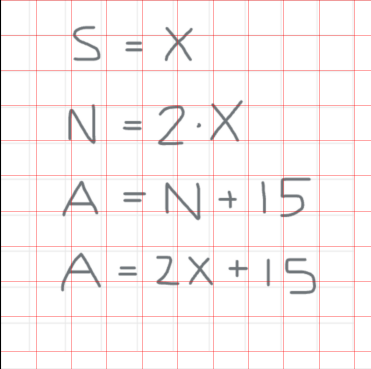 S = X
N = 2·X
A = N + 15
A = 2X + 15